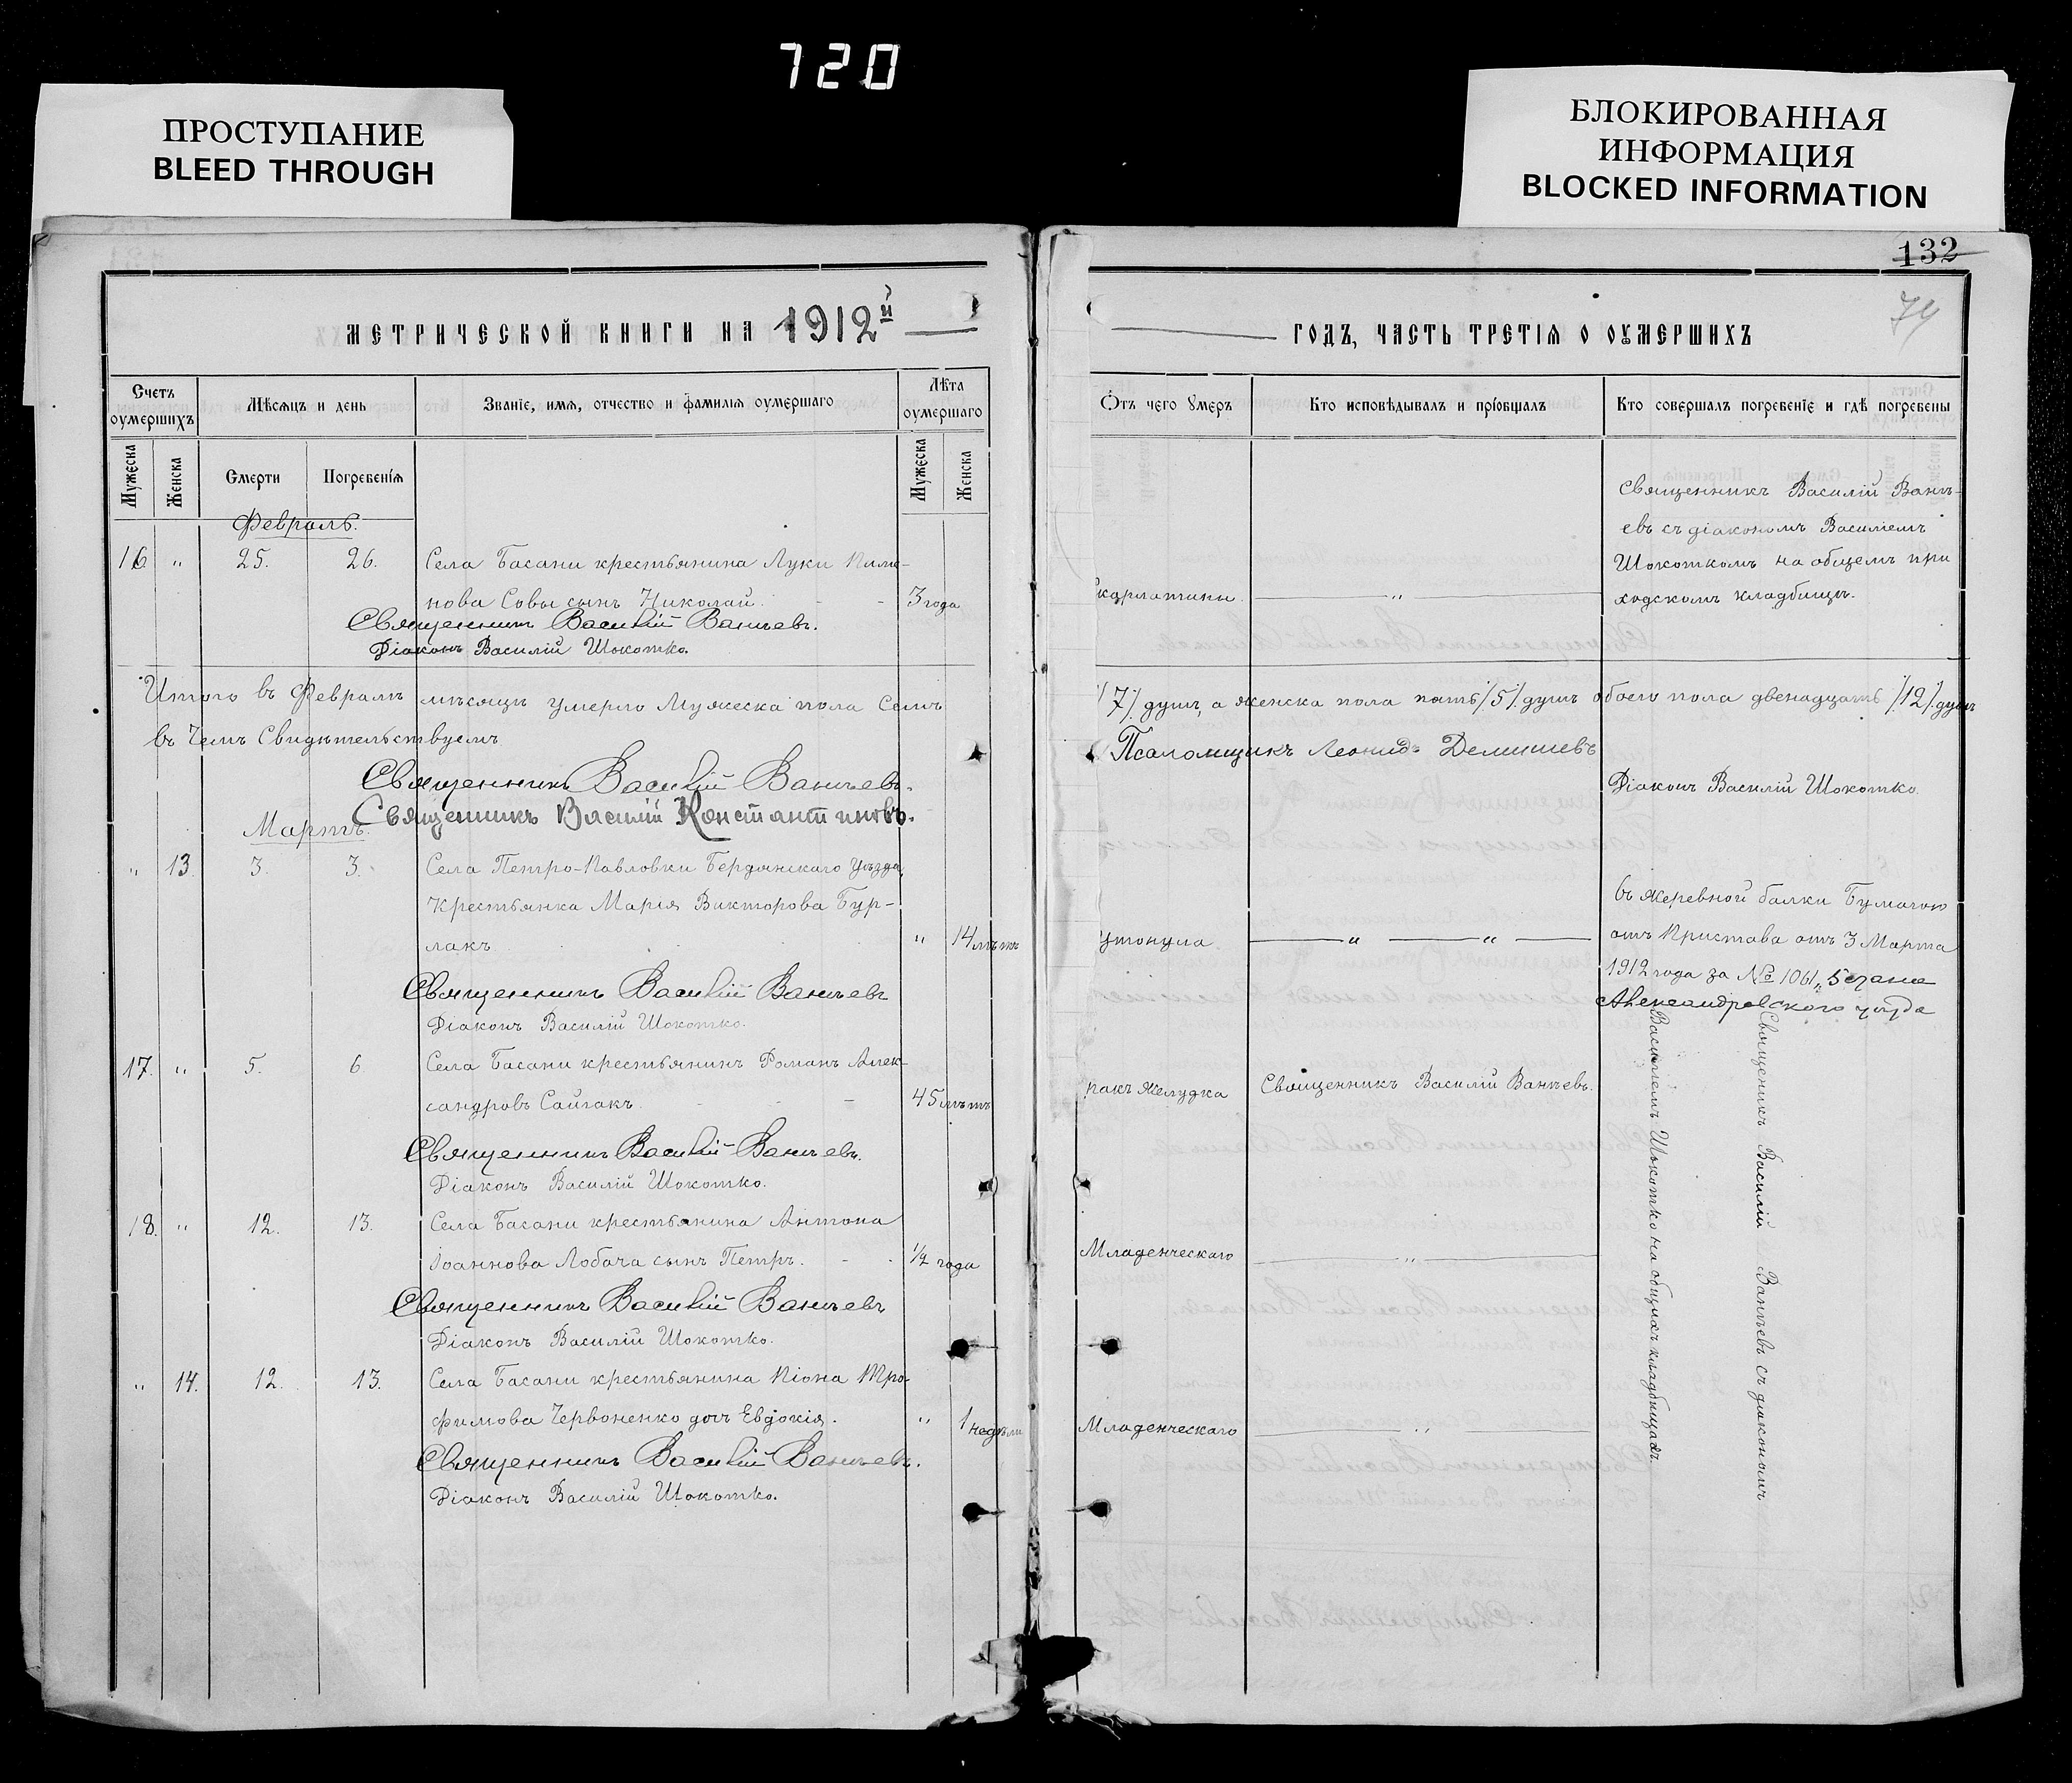 720
ПРОСТУПАНИЕ
BLEED THROUGH
БЛОКИРОВАННАЯ
ИНФОРМАЦИЯ
BLOCKED INFORMATION
132
79
МЕТРИЧЕСКОЙ КНИГИ НА 1912й
ГОДЪ, ЧАСТЬ ТРЕТІЯ О ОУМЕРШИХЪ
Счетъ оумершихъ
Мѣсяцъ и день
Званіе, имя, отчество и фамилія оумершаго
Лѣта оумершаго
Отъ чего умеръ
Кто исповѣдывалъ и пріобщалъ
Кто совершалъ погребеніе и гдѣ погребены
Мужеска
Женска
Смерти
Погребенія
Мужеска
Женска
Февраль.
16 " 25. 26. Села Басани крестьянина Луки Пиме-
нова Совы сынъ Николай. - - 3 года
Скарлатины "
Священникъ Василій Ванѣ-
евъ съ діакономъ Василіемъ
Шокоткомъ на общемъ при
ходскомъ кладбищѣ.
Священникъ Василій Ванѣевъ.
Діаконъ Василій Шокотко.
Итого въ Февралѣ мѣсяцѣ умерло Мужеска пола Семь /7/ душъ, а женска пола пять /5/ душъ обоего пола двенадцать /12/ душъ
въ чемъ Свидѣтельствуемъ
Священникъ Василій Ванѣевъ.
Псаломщикъ Леонидъ Демишевъ
Діаконъ Василій Шокотко.
Священникъ Василій Константиновъ.
Мартъ.
" 13. 3. 3. Села Петро-Павловки Бердянскаго уѣзда,
крестьянка Марія Викторова Бур-
лакъ " 14 лѣтъ
утонула " "
въ Жеребной балки Бумагою
отъ Пристава отъ 3 Марта
1912 года за № 1061, 5 стана
Александровского уѣзда
Священникъ Василій Ванѣевъ
Діаконъ Василій Шокотко.
17. " 5. 6 Села Басани крестьянинъ Романъ Алек-
сандровъ Сайгакъ. - - - 45 лѣтъ
ракъ желудка Священникъ Василій Ванѣевъ.
Священникъ Василій Ванѣевъ.
Діаконъ Василій Шокотко.
18. " 12. 13. Села Басани крестьянина Антона
Іоаннова Лобача сынъ Петръ. - - 1/2 года
Младенческаго "
Священникъ Василій Ванѣевъ
Діаконъ Василій Шокотко.
" 14. 12. 13. Села Басани крестьянина Піона Тро-
фимова Червоненко дочь Евдокія. " 1 недѣли
Младенческаго "
Священникъ Василій Ванѣевъ.
Діаконъ Василій Шокотко.
Священникъ Василій Ванѣевъ съ діакономъ
Василіемъ Шокотко на общихъ кладбищахъ.